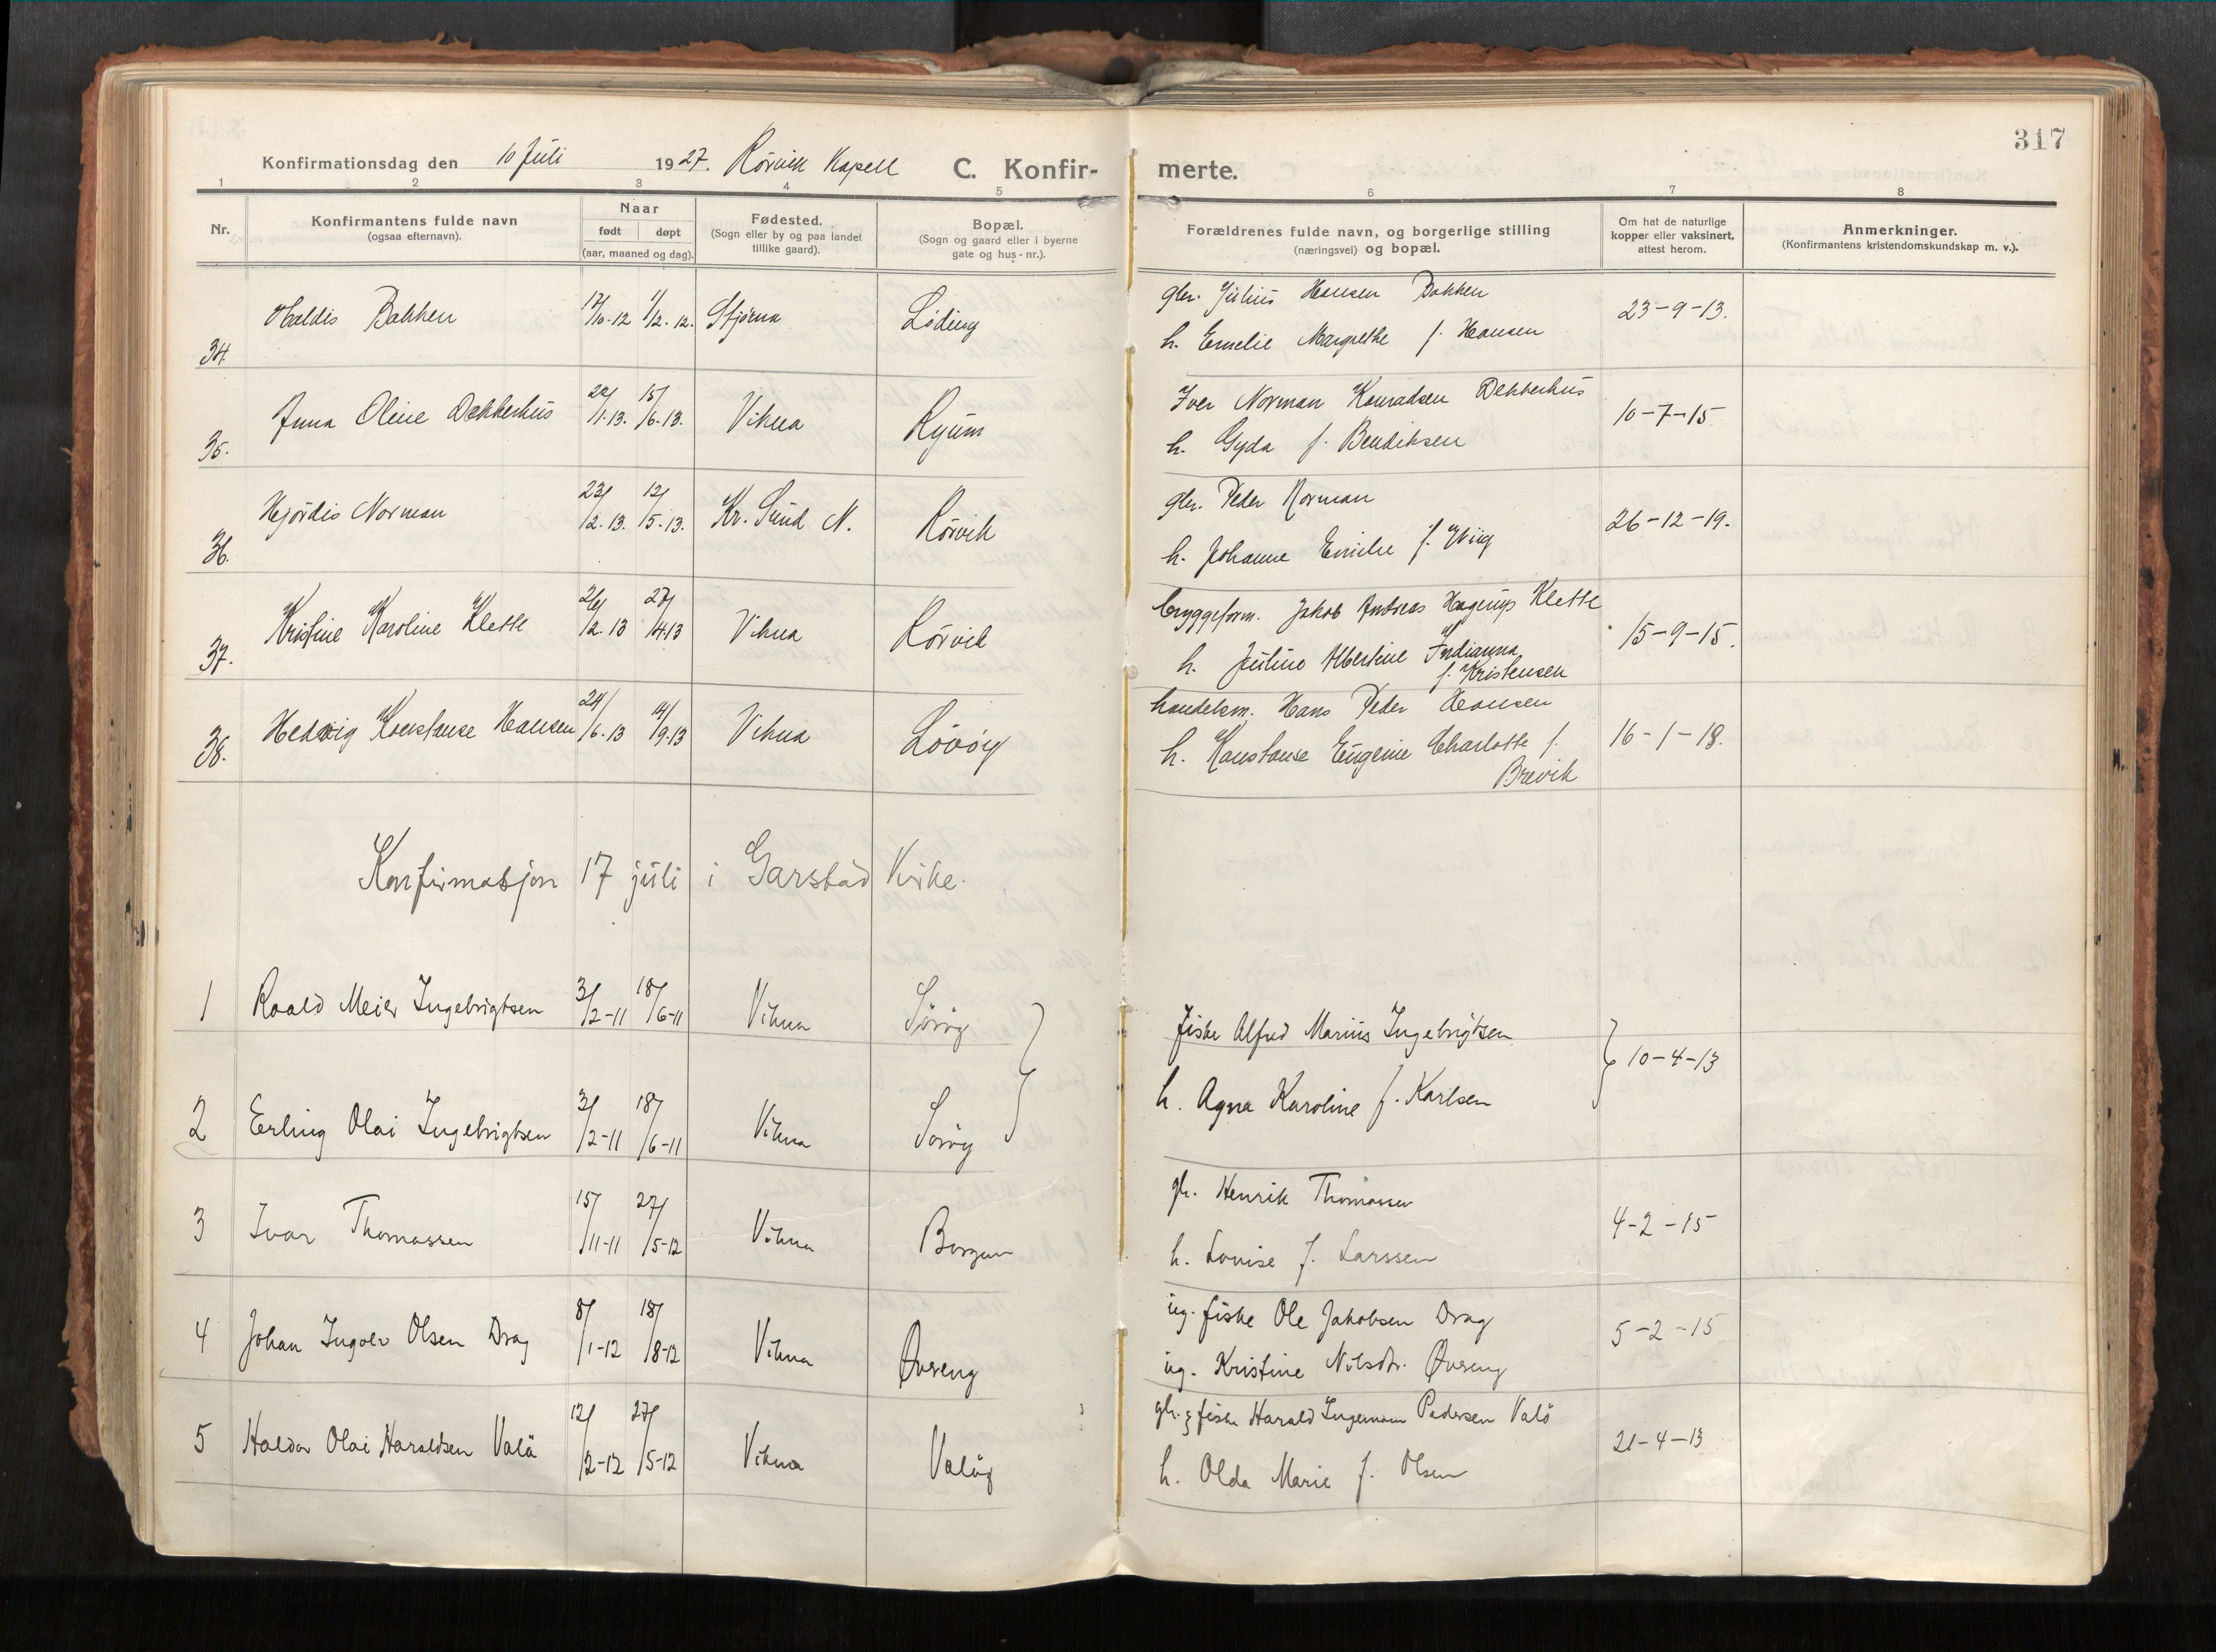 317
Konfirmationsdag den 10 Juli 1927. Rörvik Kapell C. Konfir- merte.
1 2 3 4 5 6 7 8
Nr.
Konfirmantens fulde navn
(ogsaa efternavn).
Naar
født døpt
(aar, maaned og dag).
Fødested.
(Sogn eller by og paa landet
tillike gaard).
Bopæl.
(Sogn og gaard eller i byerne
gate og hus-nr.).
Forældrenes fulde navn, og borgerlige stilling
(næringsvei) og bopæl.
Om hat de naturlige
kopper eller vaksinert,
attest herom.
Anmerkninger.
(Konfirmantens kristendomskundskap m. v.).
34. Haldis Bakken 17/10-12 1/2-12. Stjörna Löding
gbr. Julius Hansen Bakken
h. Emelie Margrethe f. Hansen
23-9-13.
35. Anna Oline Dekkerhus 1-13. 15/6-13. Vikna Ryum
Iver Norman Konradsen Dekkerhus
h. Gyda f. Bendiksen
10-7-15
36. Hjördis Norman 23/2-13. 12/5-13. Kr. Sund N. Rörvik
gbr. Peder Norman
h. Johanne Emilie f.
26-12-19.
37. Kristine Karoline Klette 26/2-13 27/4-13 Vikna Rörvik
bryggeform. Jakob Andreas Hagerup Klette
h. Juline Albertine Indianna
f. Kristensen
15-9-15.
38. Hedvig Konstanse Hansen 24/6-13 14/9-13 Vikna Lövöy
handelsm. Hans Peder Hansen
h. Konstanse Eugenie Charlotte f.
Brevik
16-1-18.
Konfirmasjon 17 juli i Garstad Kirke.
1 Roald Meier Ingebrigtsen 3/2-11 18/6-11 Vikna Söröy
fisker Alfred Marius Ingebrigtsen
h. Agna Karoline f. Karlsen
10-4-13
2 Erling Olai Ingebrigtsen 3/2-11 18/6-11 Vikna Söröy
3 Ivar Thomassen 15/11-11 27/5-12 Vikna Borgan
gbr. Henrik Thomassen
h. Lovise f. Larssen
4-2-15
4 Johan Ingolv Olsen Drag 8/1-12 18/8-12 Vikna Øvreng
ug. fisker Ole Jakobsen Drag
ug. Kristine Nilsdtr. Øvreng
5-2-15
5 Haldor Olai Haraldsen Valö 12/2-12 27/5-12 Vikna Valöy
gbr. & fisker Harald Ingemann Pedersen Valö
h. Olda Marie f. Olsen
21-4-13